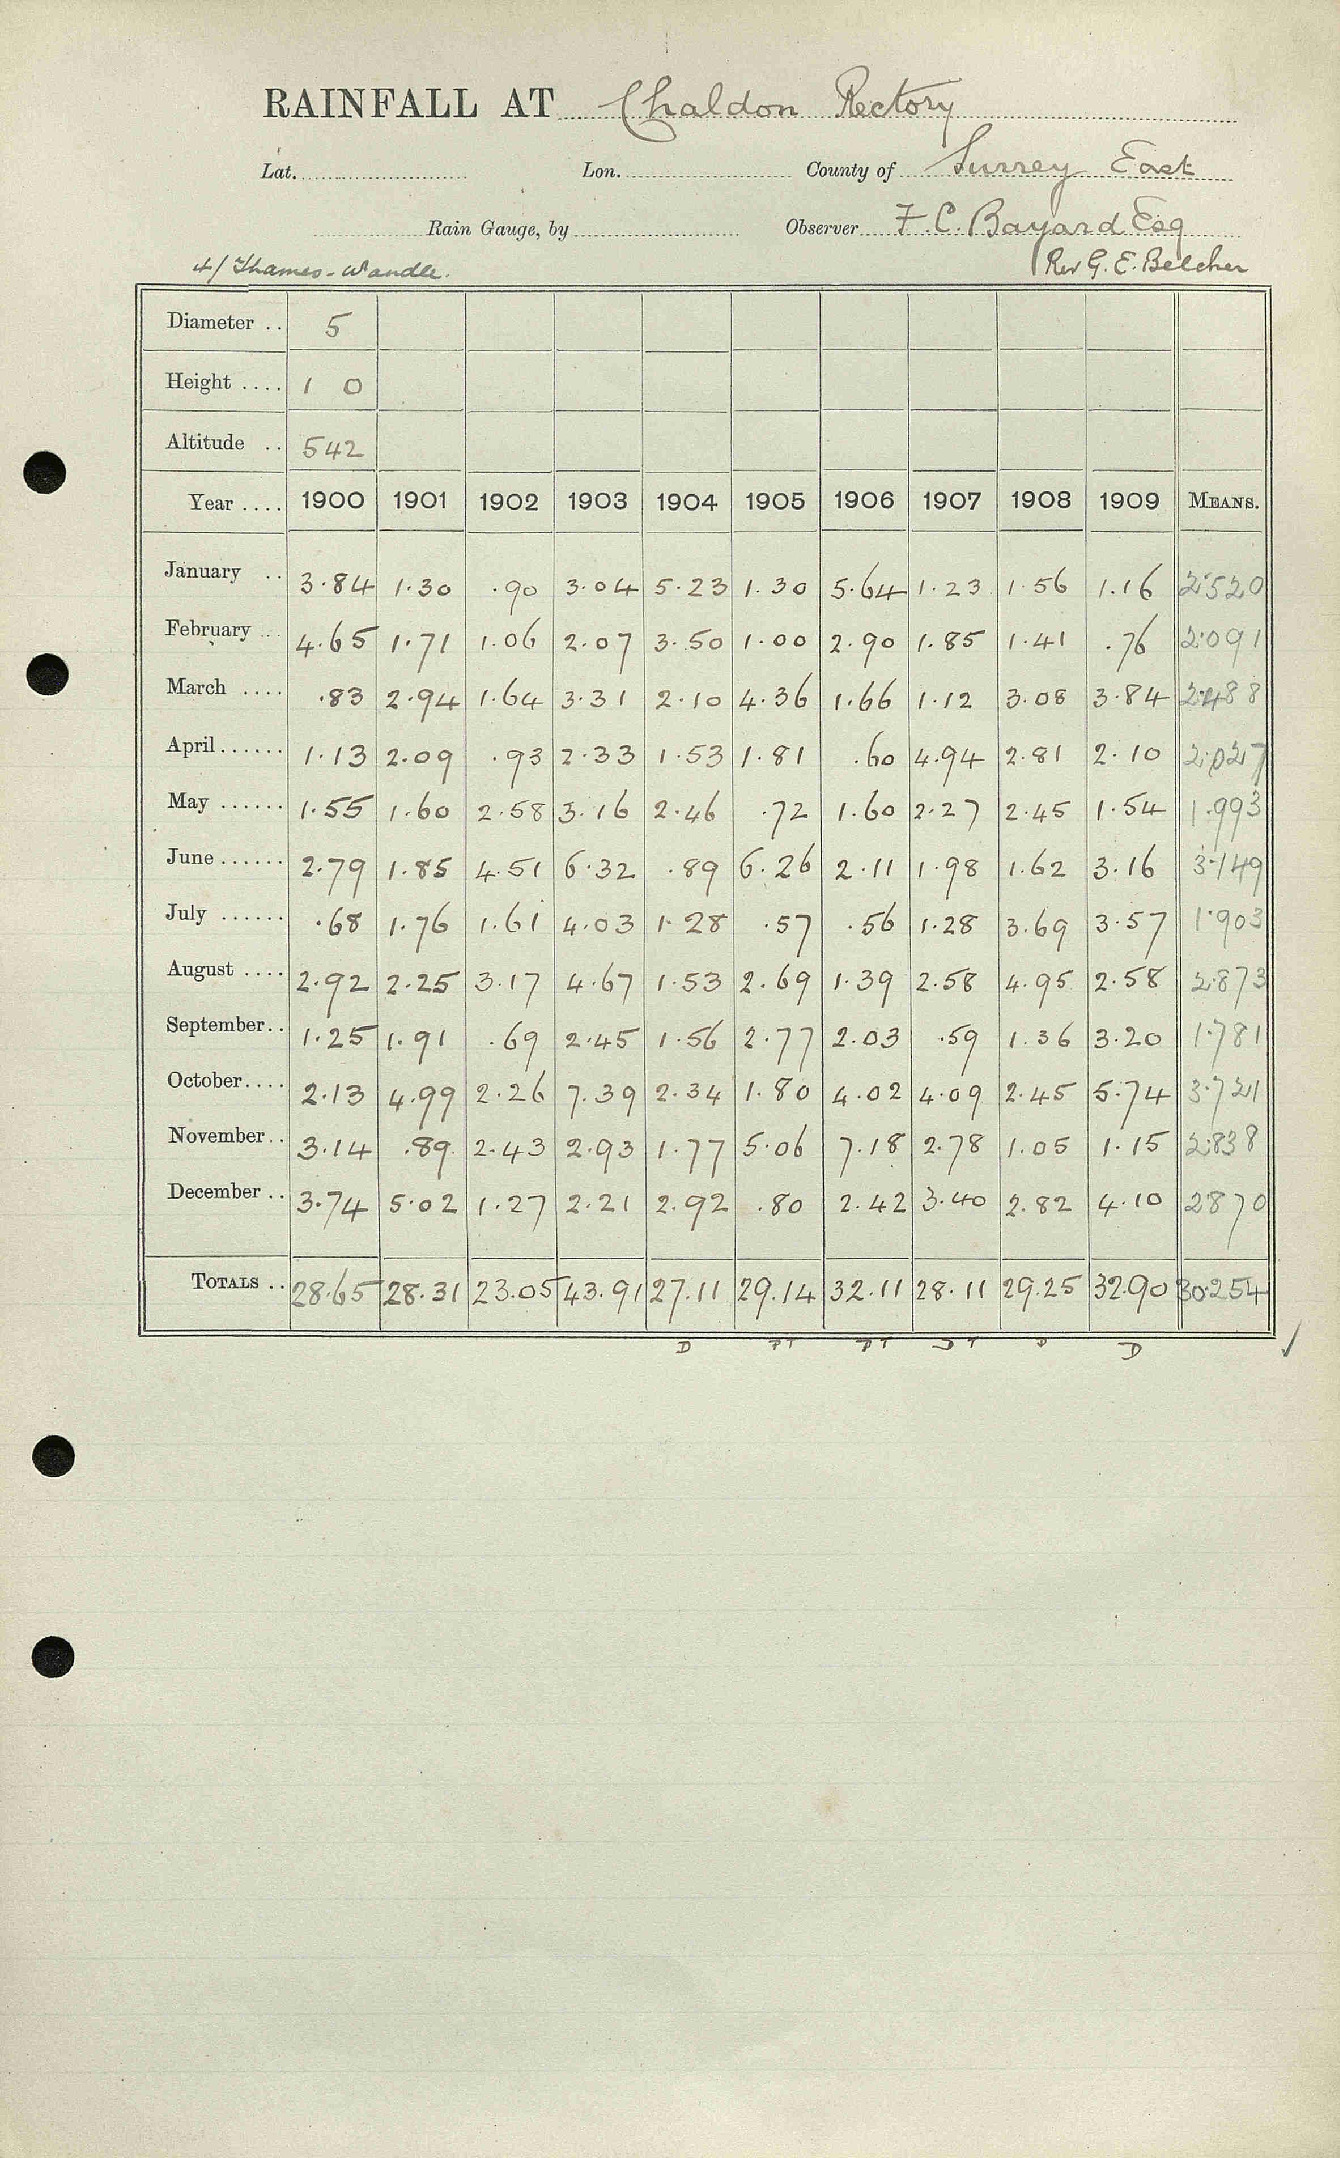 RAINFALL AT Chaldon Rectory
Lat. Lon. County of Surrey East
Rain Gauge, by Observer F. C. Bayard Esq
4/ Thames-Wandle. Rev G. E. Belcher
Diameter .. 5
Height .... 1 0
Altitude .. 542
Year .... 1900 1901 1902 1903 1904 1905 1906 1907 1908 1909 MEANS.
January .. 3.84 1.30 .90 3.04 5.23 1.30 5.64 1.23 1.56 1.16 2.520
February .. 4.65 1.71 1.06 2.07 3.50 1.00 2.90 1.85 1.41 .76 2.091
March .... .83 2.94 1.64 3.31 2.10 4.36 1.66 1.12 3.08 3.84 2.488
April...... 1.13 2.09 .93 2.33 1.53 1.81 .60 4.94 2.81 2.10 2.027
May ...... 1.55 1.60 2.58 3.16 2.46 .72 1.60 2.27 2.45 1.54 1.993
June...... 2.79 1.85 4.51 6.32 .89 6.26 2.11 1.98 1.62 3.16 3.149
July ...... .68 1.76 1.61 4.03 1.28 .57 .56 1.28 3.69 3.57 1.903
August .... 2.92 2.25 3.17 4.67 1.53 2.69 1.39 2.58 4.95 2.58 2.873
September.. 1.25 1.91 .69 2.45 1.56 2.77 2.03 .59 1.36 3.20 1.781
October.... 2.13 4.99 2.26 7.39 2.34 1.80 4.02 4.09 2.45 5.74 3.721
November.. 3.14 .89 2.43 2.93 1.77 5.06 7.18 2.78 1.05 1.15 2.838
December .. 3.74 5.02 1.27 2.21 2.92 .80 2.42 3.40 2.82 4.10 2870
TOTALS .. 28.65 28.31 23.05 43.91 27.11 29.14 32.11 28.11 29.25 32.90 30.254
D D